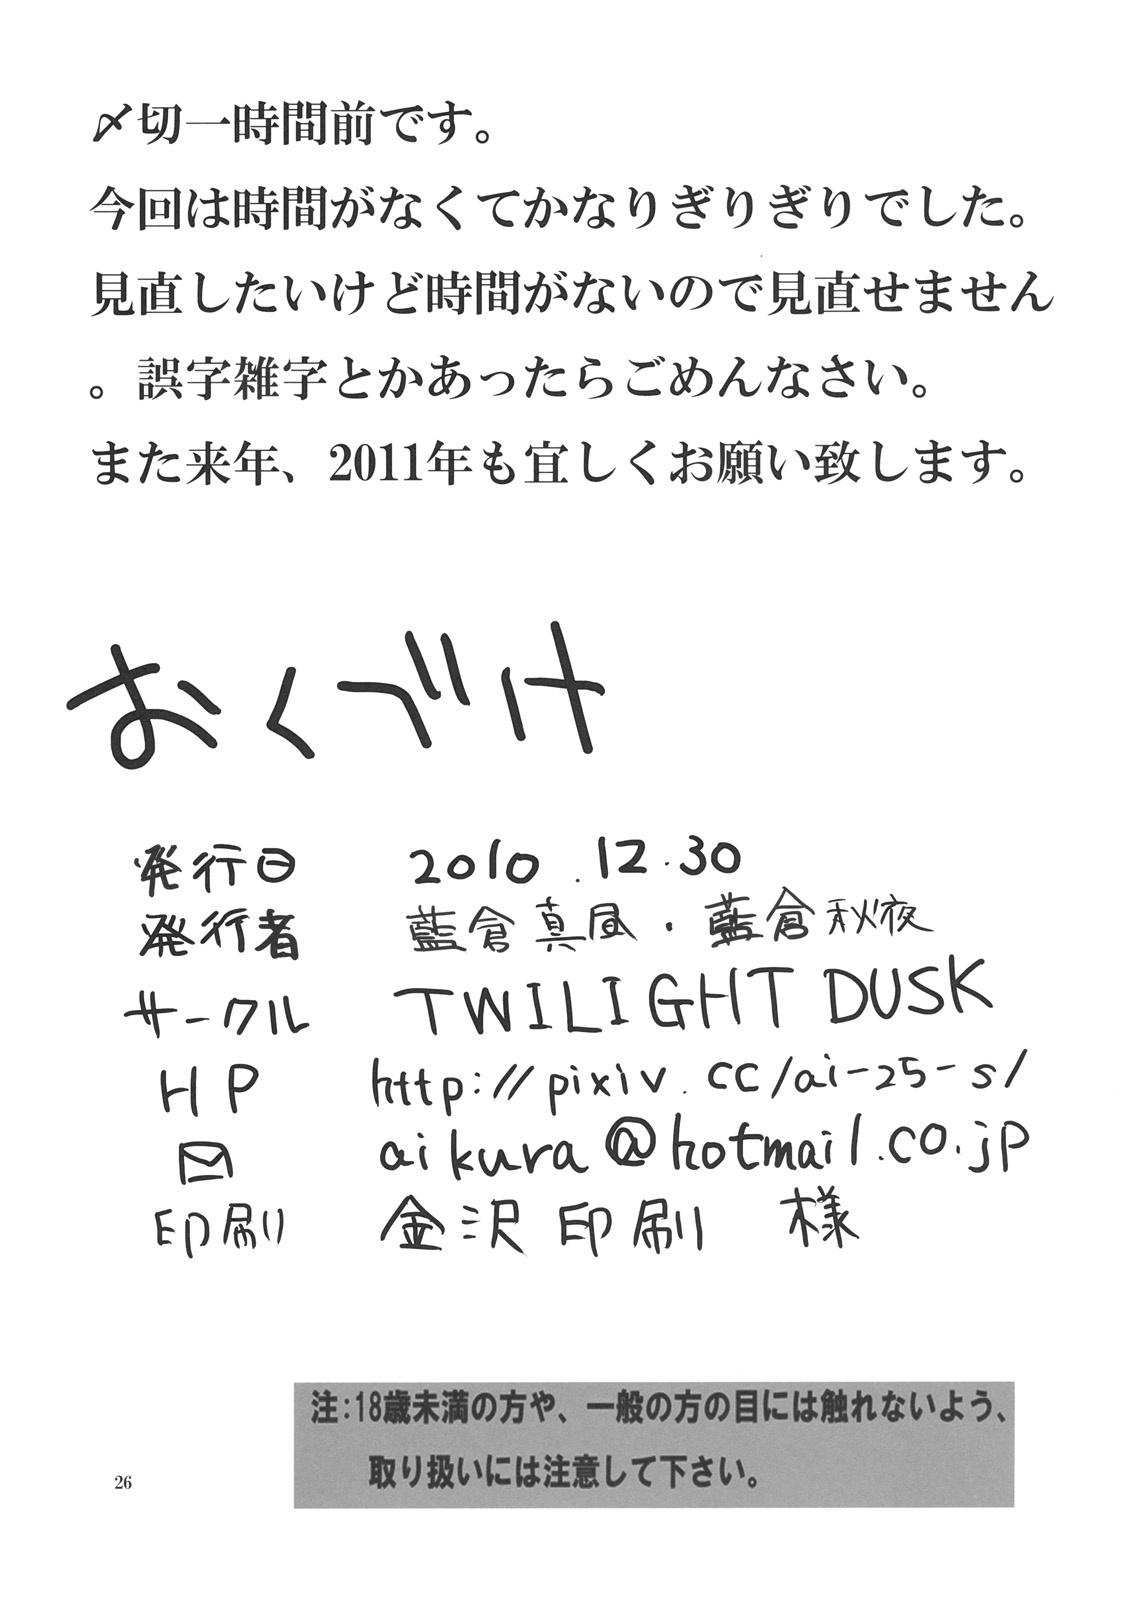 〆切一時間前です。
今回は時間がなくてかなりぎりぎりでした。
見直したいけど時間がないので見直せません
。誤字雑字とかあったらごめんなさい。
また来年、2011年も宜しくお願い致します。
おくづけ
発行日 2010.12.30
発行者 藍倉真昼・藍倉秋夜
サークル TWILIGHT DUSK
HP http://pixiv.cc/ai-25-s/
✉ aikura@hotmail.co.jp
印刷 金沢印刷 様
注:18歳未満の方や、一般の方の目には触れないよう、
取り扱いには注意して下さい。
26